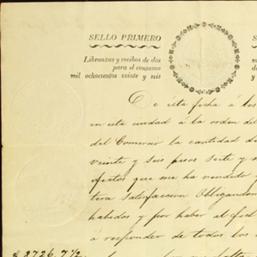 SELLO PRIMERO
Libranzas y recibos de dos
para el consumo
mil ochocientos veinte y seis
De esta fecha á los
en esta ciudad á la orden del
del Comercio la cantidad de
veinte y seis pesos siete y
efectos que me ha vendido y
tera satisfaccion Obligando
habidos y por haber al fiel
á responder de todos los
$ 2726„7½